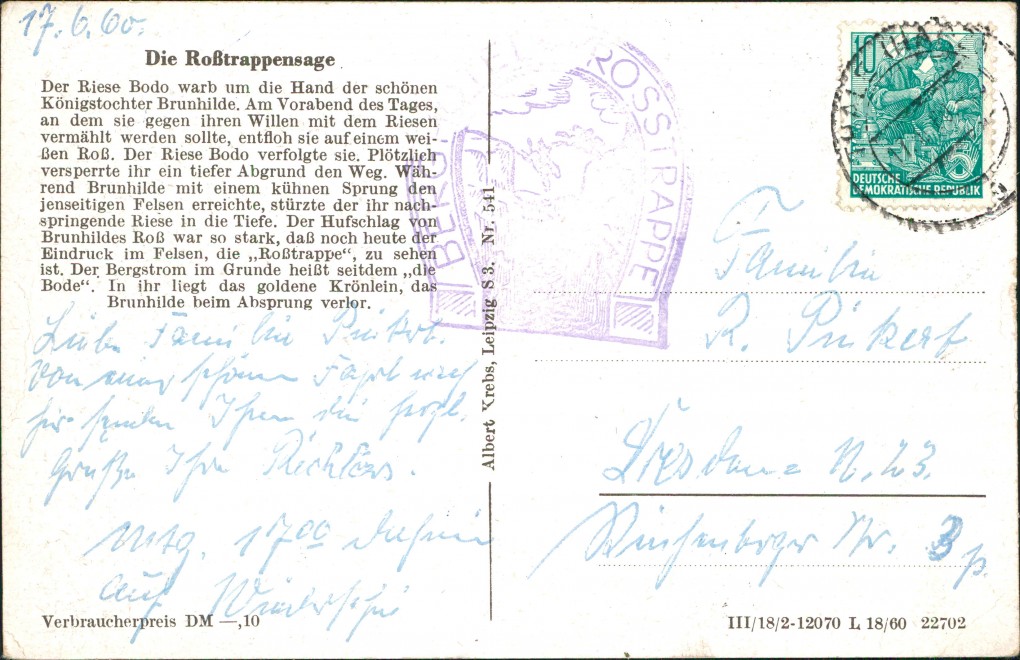 17.6.60.
Die Roßtrappensage
Der Riese Bodo warb um die Hand der schönen
Königstochter Brunhilde. Am Vorabend des Tages,
an dem sie gegen ihren Willen mit dem Riesen
vermählt werden sollte, entfloh sie auf einem wei-
ßen Roß. Der Riese Bodo verfolgte sie. Plötzlich
versperrte ihr ein tiefer Abgrund den Weg. Wäh-
rend Brunhilde mit einem kühnen Sprung den
jenseitigen Felsen erreichte, stürzte der ihr nach-
springende Riese in die Tiefe. Der Hufschlag von
Brunhildes Roß war so stark, daß noch heute der
Eindruck im Felsen, die „Roßtrappe“, zu sehen
ist. Der Bergstrom im Grunde heißt seitdem „die
Bode“. In ihr liegt das goldene Krönlein, das
Brunhilde beim Absprung verlor.
Liebe Familie Pinkert.
Von schönen Fahrt nach
hier senden Ihnen die herzl.
Grüße Ihre Richters.
1700
Auf
Verbraucherpreis DM —,10
Albert Krebs, Leipzig S 3. Nr. 541
BERG
ROSSTRAPPE
10
DEUTSCHE
DEMOKRATISCHE REPUBLIK
Familie
R. Pinkert
Dresden N. 23.
Str. 3 p.
III/18/2-12070 L 18/60 22702